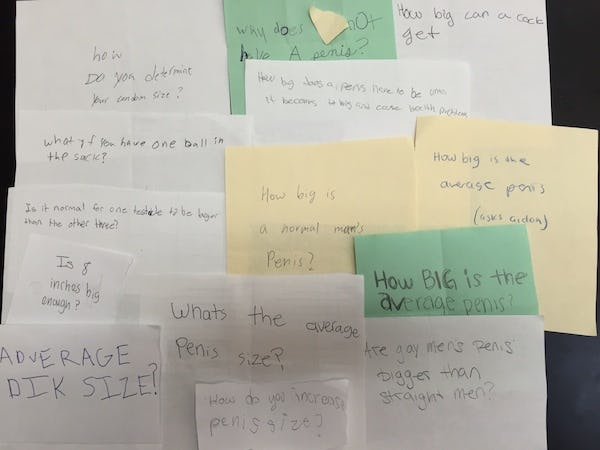 how
Do you determine
your condom size?
why does nOt
have A penis?
How big can a cock
get
How big does a penis have to be until
it becomes to big and cause health problems
what if you have one ball in
the sack?
How big is
a normal man's
Penis?
How big is the
average penis
(asks aidan)
Is it normal for one testicle to be larger
than the other three?
Is 8
inches big
enough?
How BIG is the
average penis?
Whats the average
Penis size?
ADVERAGE
DIK SIZE?
Are gay mens penis
bigger than
straight men?
How do you increase
penis size?